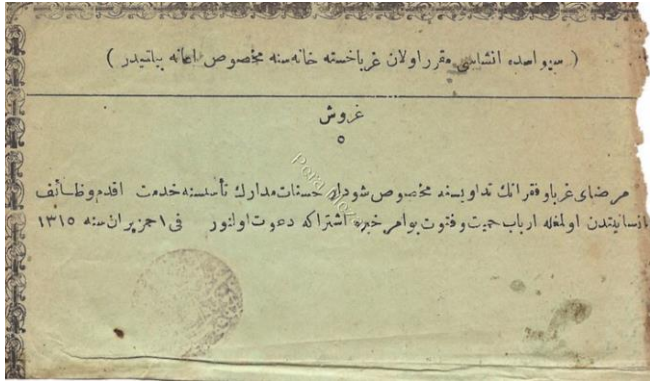 ( سيواسده انشاسی مقرر اولان غرباخسته خانه سنه مخصوص اعانه بيلتيدر )
غروش
٥
مرضای غربا و فقرانك تداويسنه مخصوص شو دار حسنات مدارك تأسيسنه خدمت اقدم وظائف
انسانيتدن اولمغله ارباب حميت و فتوت بو امر خيره اشتراكه دعوت اولنور فی ١ حزيران سنه ١٣١٥
Pera Mezat